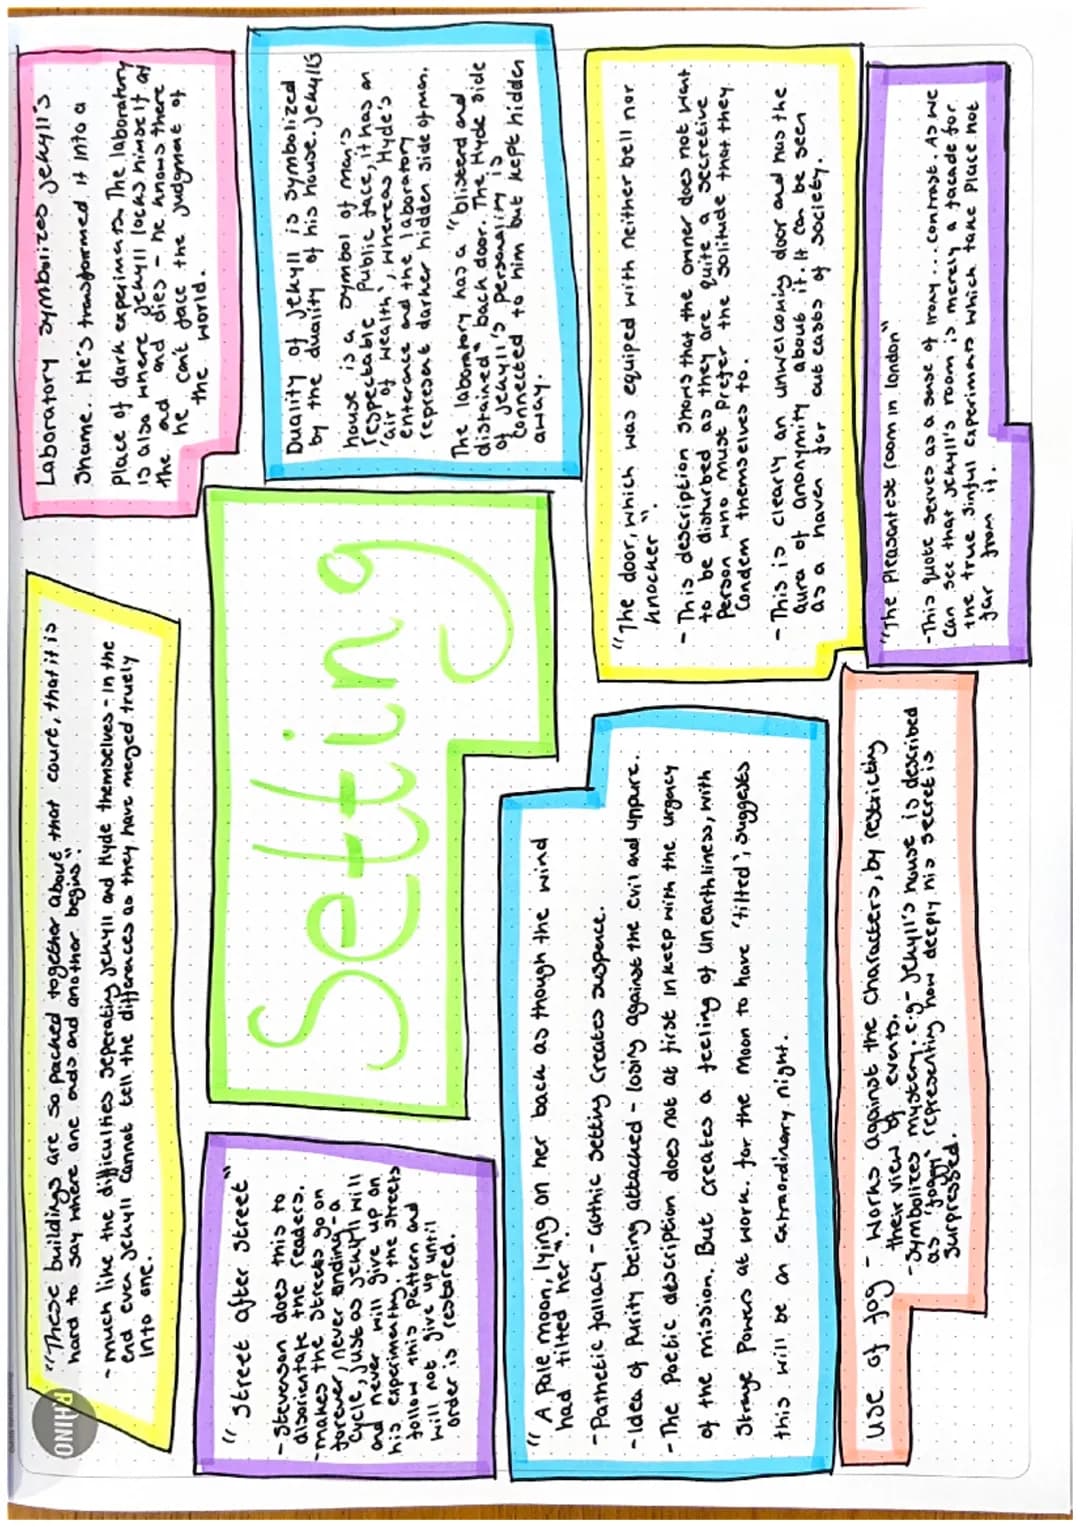 "These buildings are so packed together about that court, that it is
hard to say where one ends and another begins".
- much like the difficulties seperating Jekyll and Hyde themselves - in the
end even Jekyll cannot tell the differences as they have merged truely
into one.
Laboratory symbolizes Jekyll's
shame. He's transformed it into a
place of dark experiments. The laboratory
is also where Jekyll locks himself at
the end and dies - he knows there
he can't face the judgment of
the world.
"Street after street"
- Stevenson does this to
disorientate the readers.
- makes the streets go on
forever, never ending - a
cycle, just as Jekyll will
and never will give up on
his experimenting, the streets
follow this patten and
will not give up until
order is restored.
Setting
Duality of Jekyll is symbolized
by the duality of his house. Jekyll's
house is a symbol of man's
respectable public face, it has an
'air of wealth', whereas Hyde's
enterance and the laboratory
represent darker hidden side of man.
The laboratory has a "blisterd and
distained" back door. The Hyde side
of Jekyll's personality is
connected to him but kept hidden
away.
"A Pale moon, lying on her back as though the wind
had tilted her".
- Pathetic fallacy - Gothic setting creates suspence.
- Idea of Purity being attacked - losing against the evil and unpure.
- The Poetic description does not at first inkeep with the urgency
of the mission. But creates a feeling of unearthliness, with
strange Powers at work. for the Moon to have 'tilted', suggests
this will be an extraordinary night.
"The door, which was equiped with neither bell nor
Knocker"
- This description shows that the owner does not want
to be disturbed as they are quite a secretive
Person who must Prefer the solitude that they
Condem themselves to.
- This is clearly an unwelcoming door and has the
aura of anonymity about it. It can be seen
as a haven for out casts of society.
use of fog - Works against the Characters, by restricting
their view of events.
- Symbolizes mystery. e.g - Jekyll's house is described
as 'foggy' representing how deeply his secret is
surpressed.
"The Pleasantest room in london"
- This quote serves as a sense of irony ... contrast. As we
can see that Jekyll's room is merely a facade for
the true sinful experiments which take place not
far from it.
RHINO